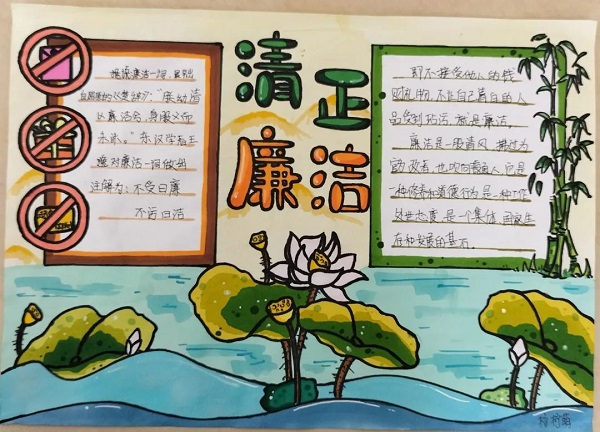 清正
廉洁
据传廉洁一词,最早出
自屈原的《楚辞》:"朕幼清
以廉洁兮,身服义而
未沬。"东汉学者王
逸对廉洁一词做出
注解为:不受曰廉
不污曰洁
即不接受他人的钱
财礼物,不让自己清白的人
品受到玷污,就是廉洁。
廉洁是一股清风,拂过
是
一种修养和道德行为,是一种工作
处世态度,是一个集体、国家生
存和发展的基石。